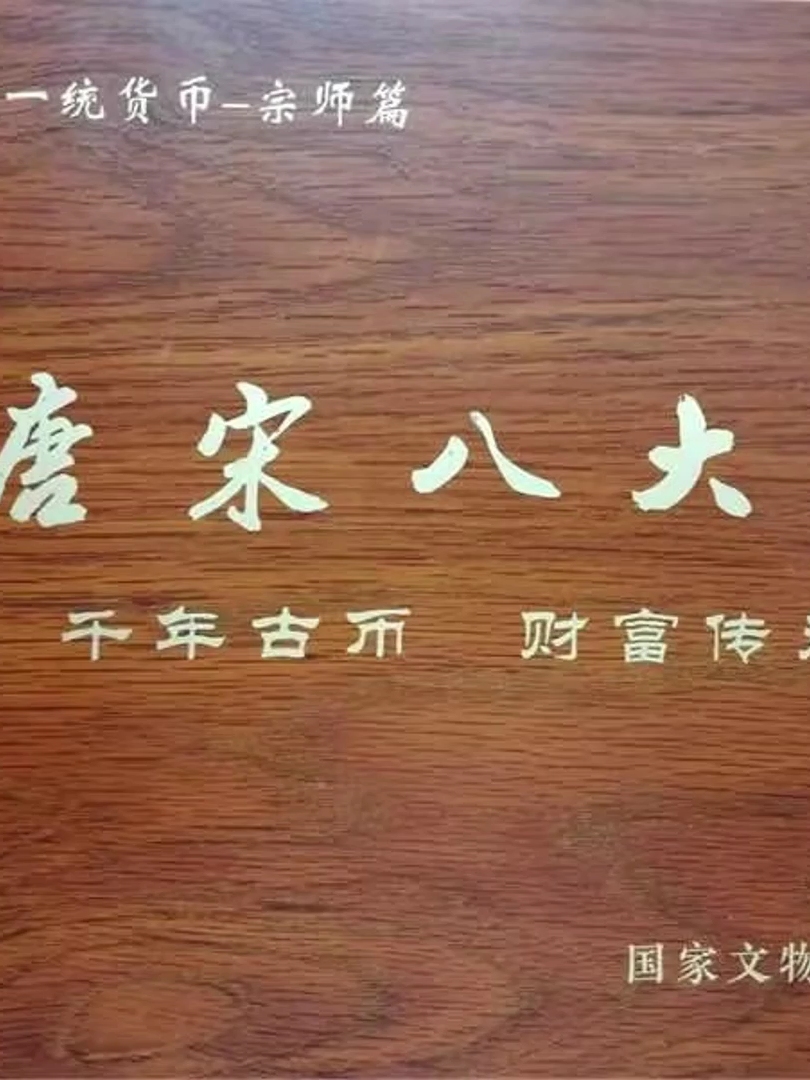 一统货币-宗师篇
唐宋八大
千年古币 财富传
国家文物